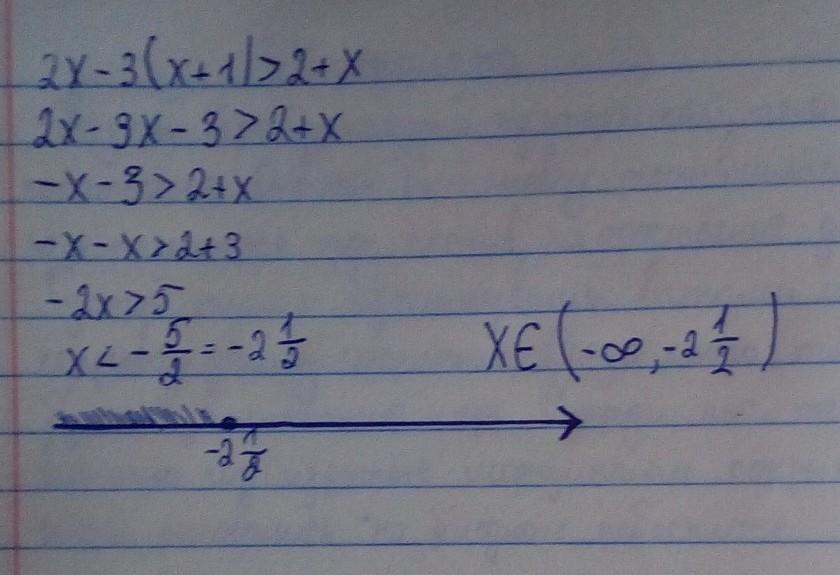 2x-3(x+1)>2+x
2x-3x-3>2+x
-x-3>2+x
-x-x>2+3
-2x>5
x<-5/2=-2 1/2
x∈(-∞,-2 1/2)
-2 1/2